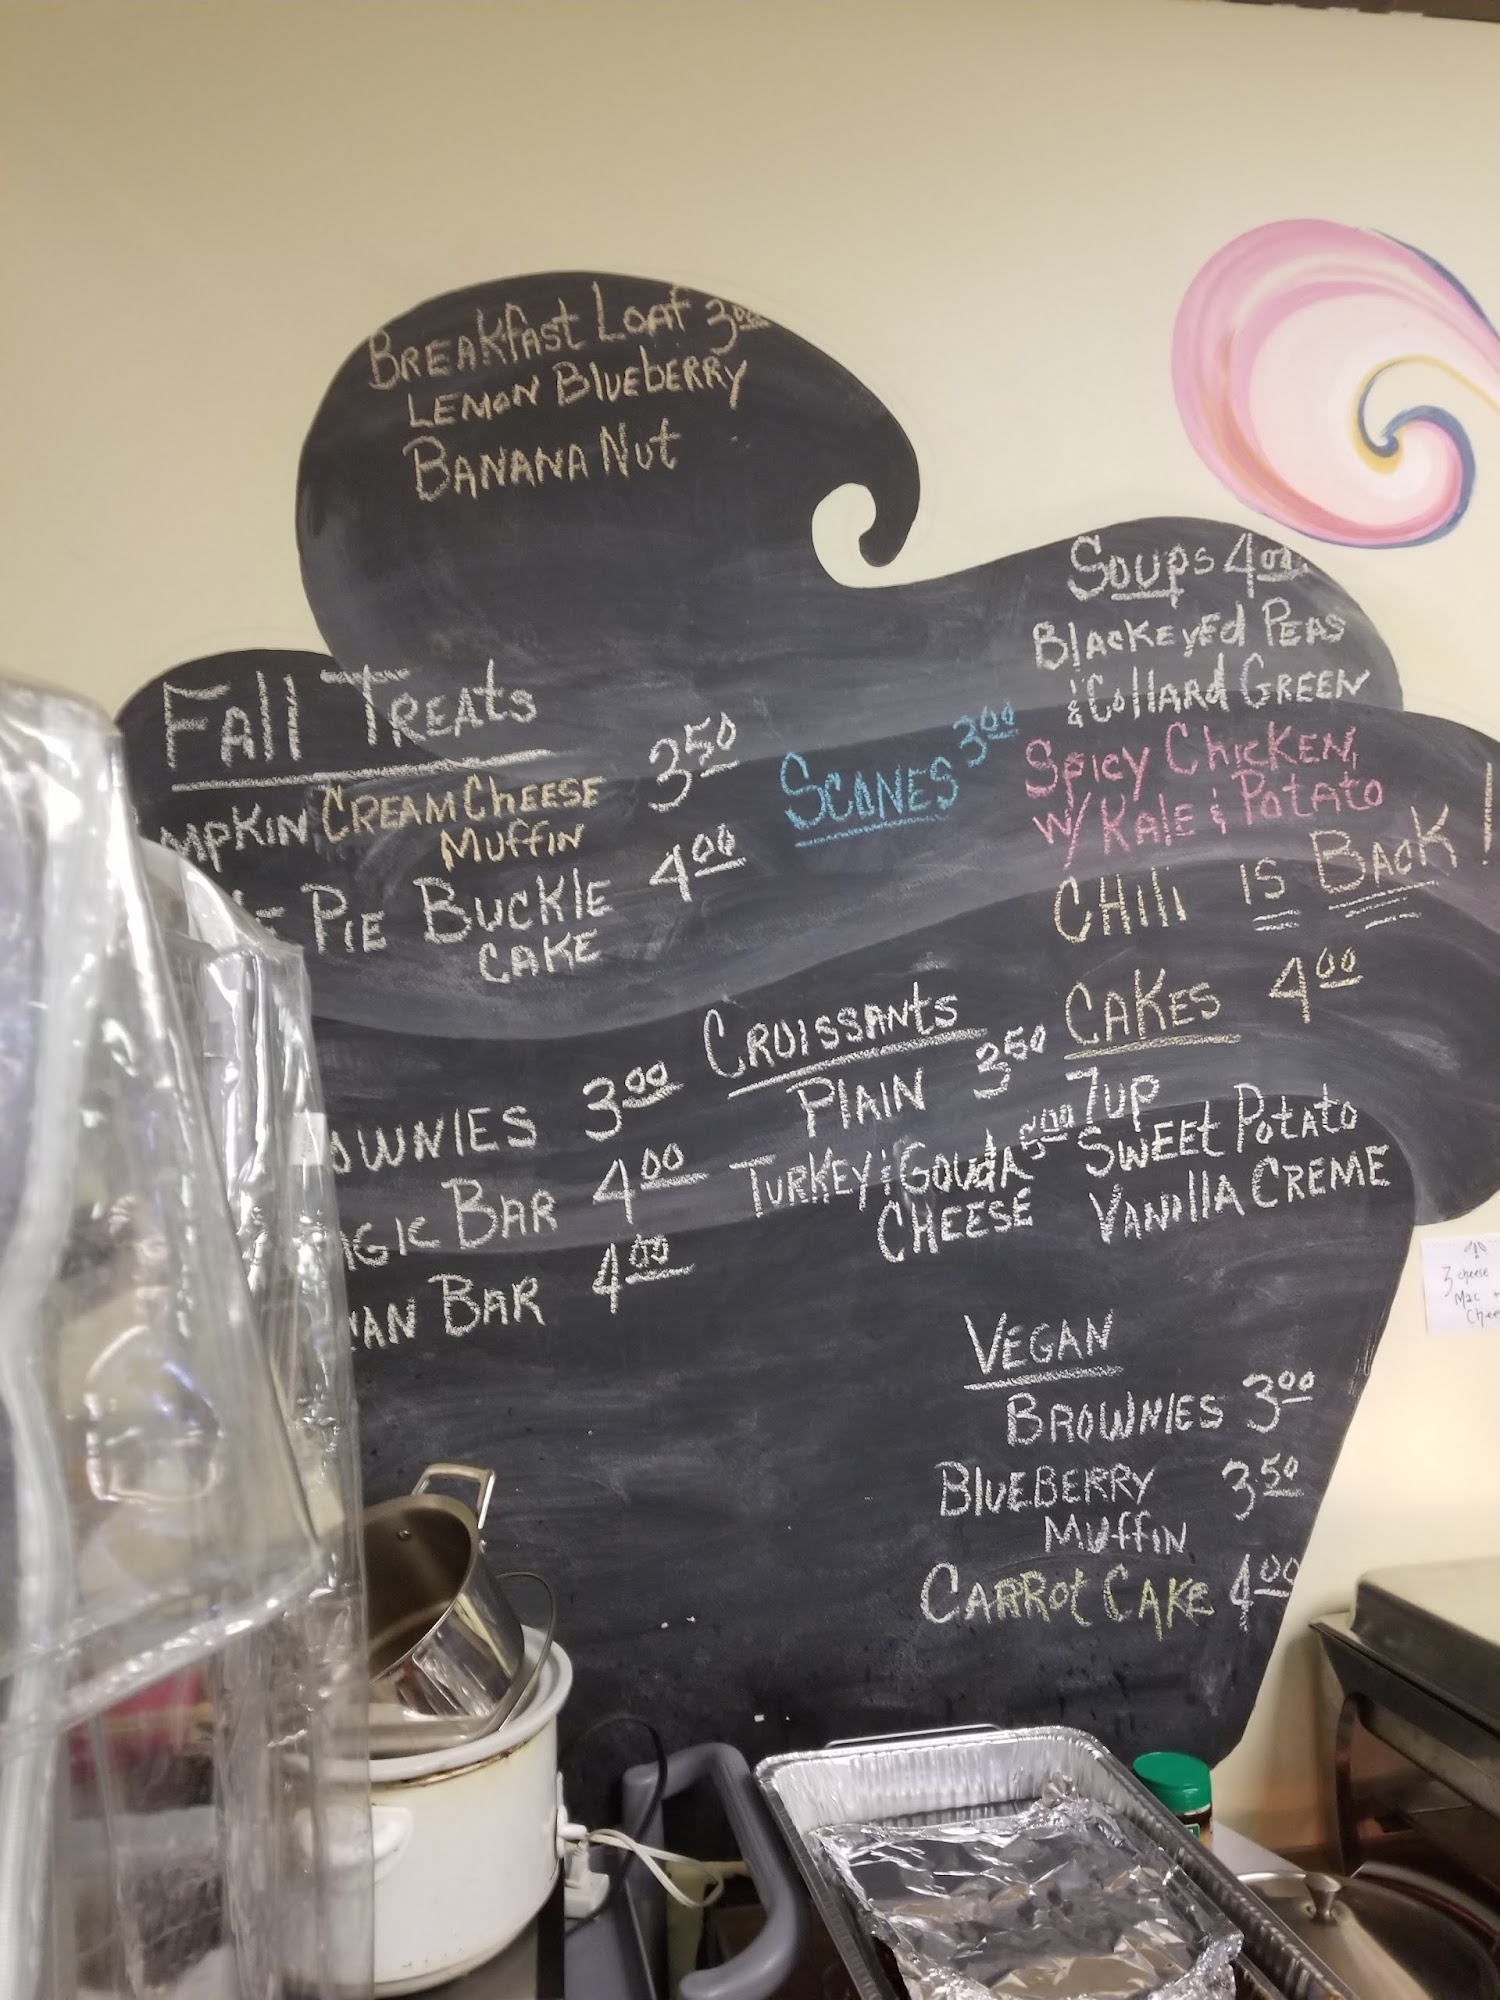 Breakfast Loaf 3.00
Lemon Blueberry
Banana Nut
Fall Treats
Cream Cheese 3.50
Muffin
Pie Buckle 4.00
Cake
Scones 3.00
Soups 4.00
Blackeyed Peas
& Collard Green
Spicy Chicken,
w/ Kale & Potato
Chili is Back!
3.00
Bar 4.00
Bar 4.00
Croissants
Plain 3.50
Turkey & Gouda 5.00
Cheese
Cakes 4.00
7up
Sweet Potato
Vanilla Creme
Vegan
Brownies 3.00
Blueberry 3.50
Muffin
Carrot Cake 4.00
3 cheese
Mac